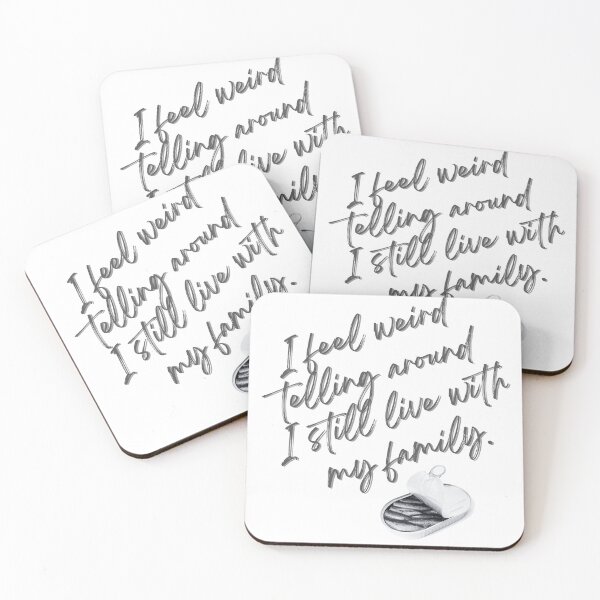 I feel weird
telling around
I still live with
my family.
I feel weird
telling around
I still live with
my family.
I feel weird
telling around
I still live with
my family.
I feel weird
telling around
I still live with
my family.